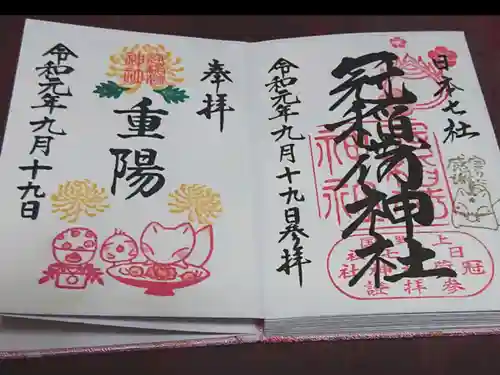 日本七社
冠稲荷神社
令和元年九月十九日参拝
上野国
日本七社
冠
参拝証
奉拝
重陽
令和元年九月十九日